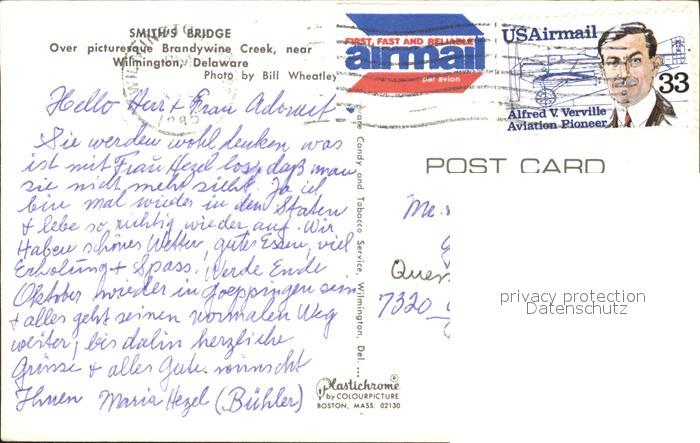 SMITH'S BRIDGE
Over picturesque Brandywine Creek, near
Wilmington, Delaware
Photo by Bill Wheatley
FIRST, FAST AND RELIABLE
airmail
par avion
USAirmail
33
Alfred V. Verville
Aviation Pioneer
1985
POST CARD
Hello Herr + Frau Adomeit
Sie werden wohl denken was
ist mit Frau Hezel los, daß man
sie nicht mehr sieht. Ja ich
bin mal wieder in den Staaten
+ lebe so richtig wieder auf. Wir
Haben schönes Wetter, gutes Essen, viel
Erholung + Spass. Werde Ende
Oktober wieder in Goeppingen sein
+ alles geht seinen normalen Weg
weiter, bis dahin herzliche
Grüsse + alles Gute wünscht
Ihnen Maria Hezel (Bühler)
Candy and Tobacco Service, Wilmington, Del.
Plastichrome®
by COLOURPICTURE
BOSTON, MASS. 02130
7320
privacy protection
Datenschutz